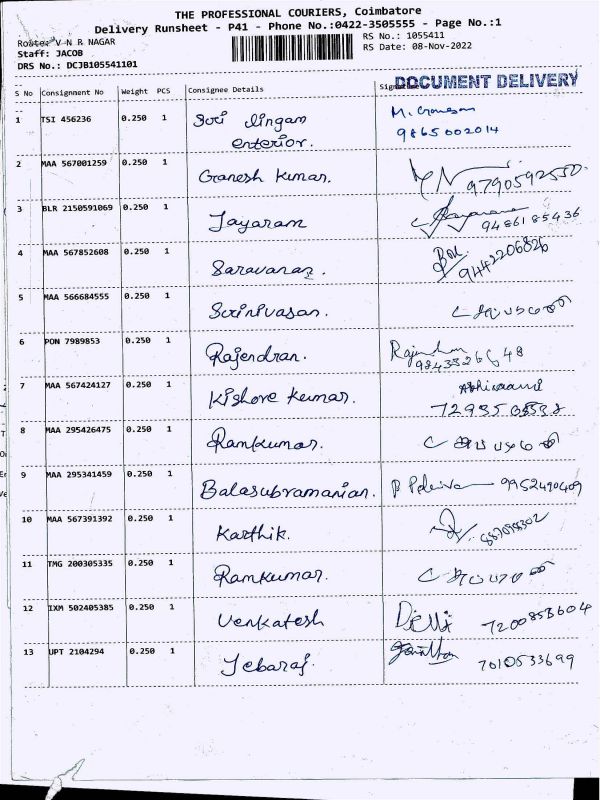 THE PROFESSIONAL COURIERS, Coimbatore
Delivery Runsheet - P41 - Phone No.:0422-3505555 - Page No.:1
Route: V N R NAGAR
RS No.: 1055411
Staff: JACOB
RS Date: 08-Nov-2022
DRS No.: DCJB105541101
DOCUMENT DELIVERY
S No Consignment No Weight PCS Consignee Details
1 TSI 456236 0.250 1 Sri lingam
enterior.
9865002014
2 MAA 567001259 0.250 1 Ganesh kumar. 9790592550
3 BLR 2150591069 0.250 1 Jayaram 9486185436
4 MAA 567852608 0.250 1 Saravanan. 9442206826
5 MAA 566684555 0.250 1 Srinivasan.
6 PON 7989853 0.250 1 Rajendran.
9843326648
7 MAA 567424127 0.250 1 Kishore kumar.
8 MAA 295426475 0.250 1 Ramkumar.
9 MAA 295341459 0.250 1 Balasubramanian. 9952490409
10 MAA 567391392 0.250 1 Karthik.
11 TMG 200305335 0.250 1 Ramkumar.
12 IXM 502405385 0.250 1 Venkatesh Dilli 7200853604
13 UPT 2104294 0.250 1 Jebaraj. 7010533699